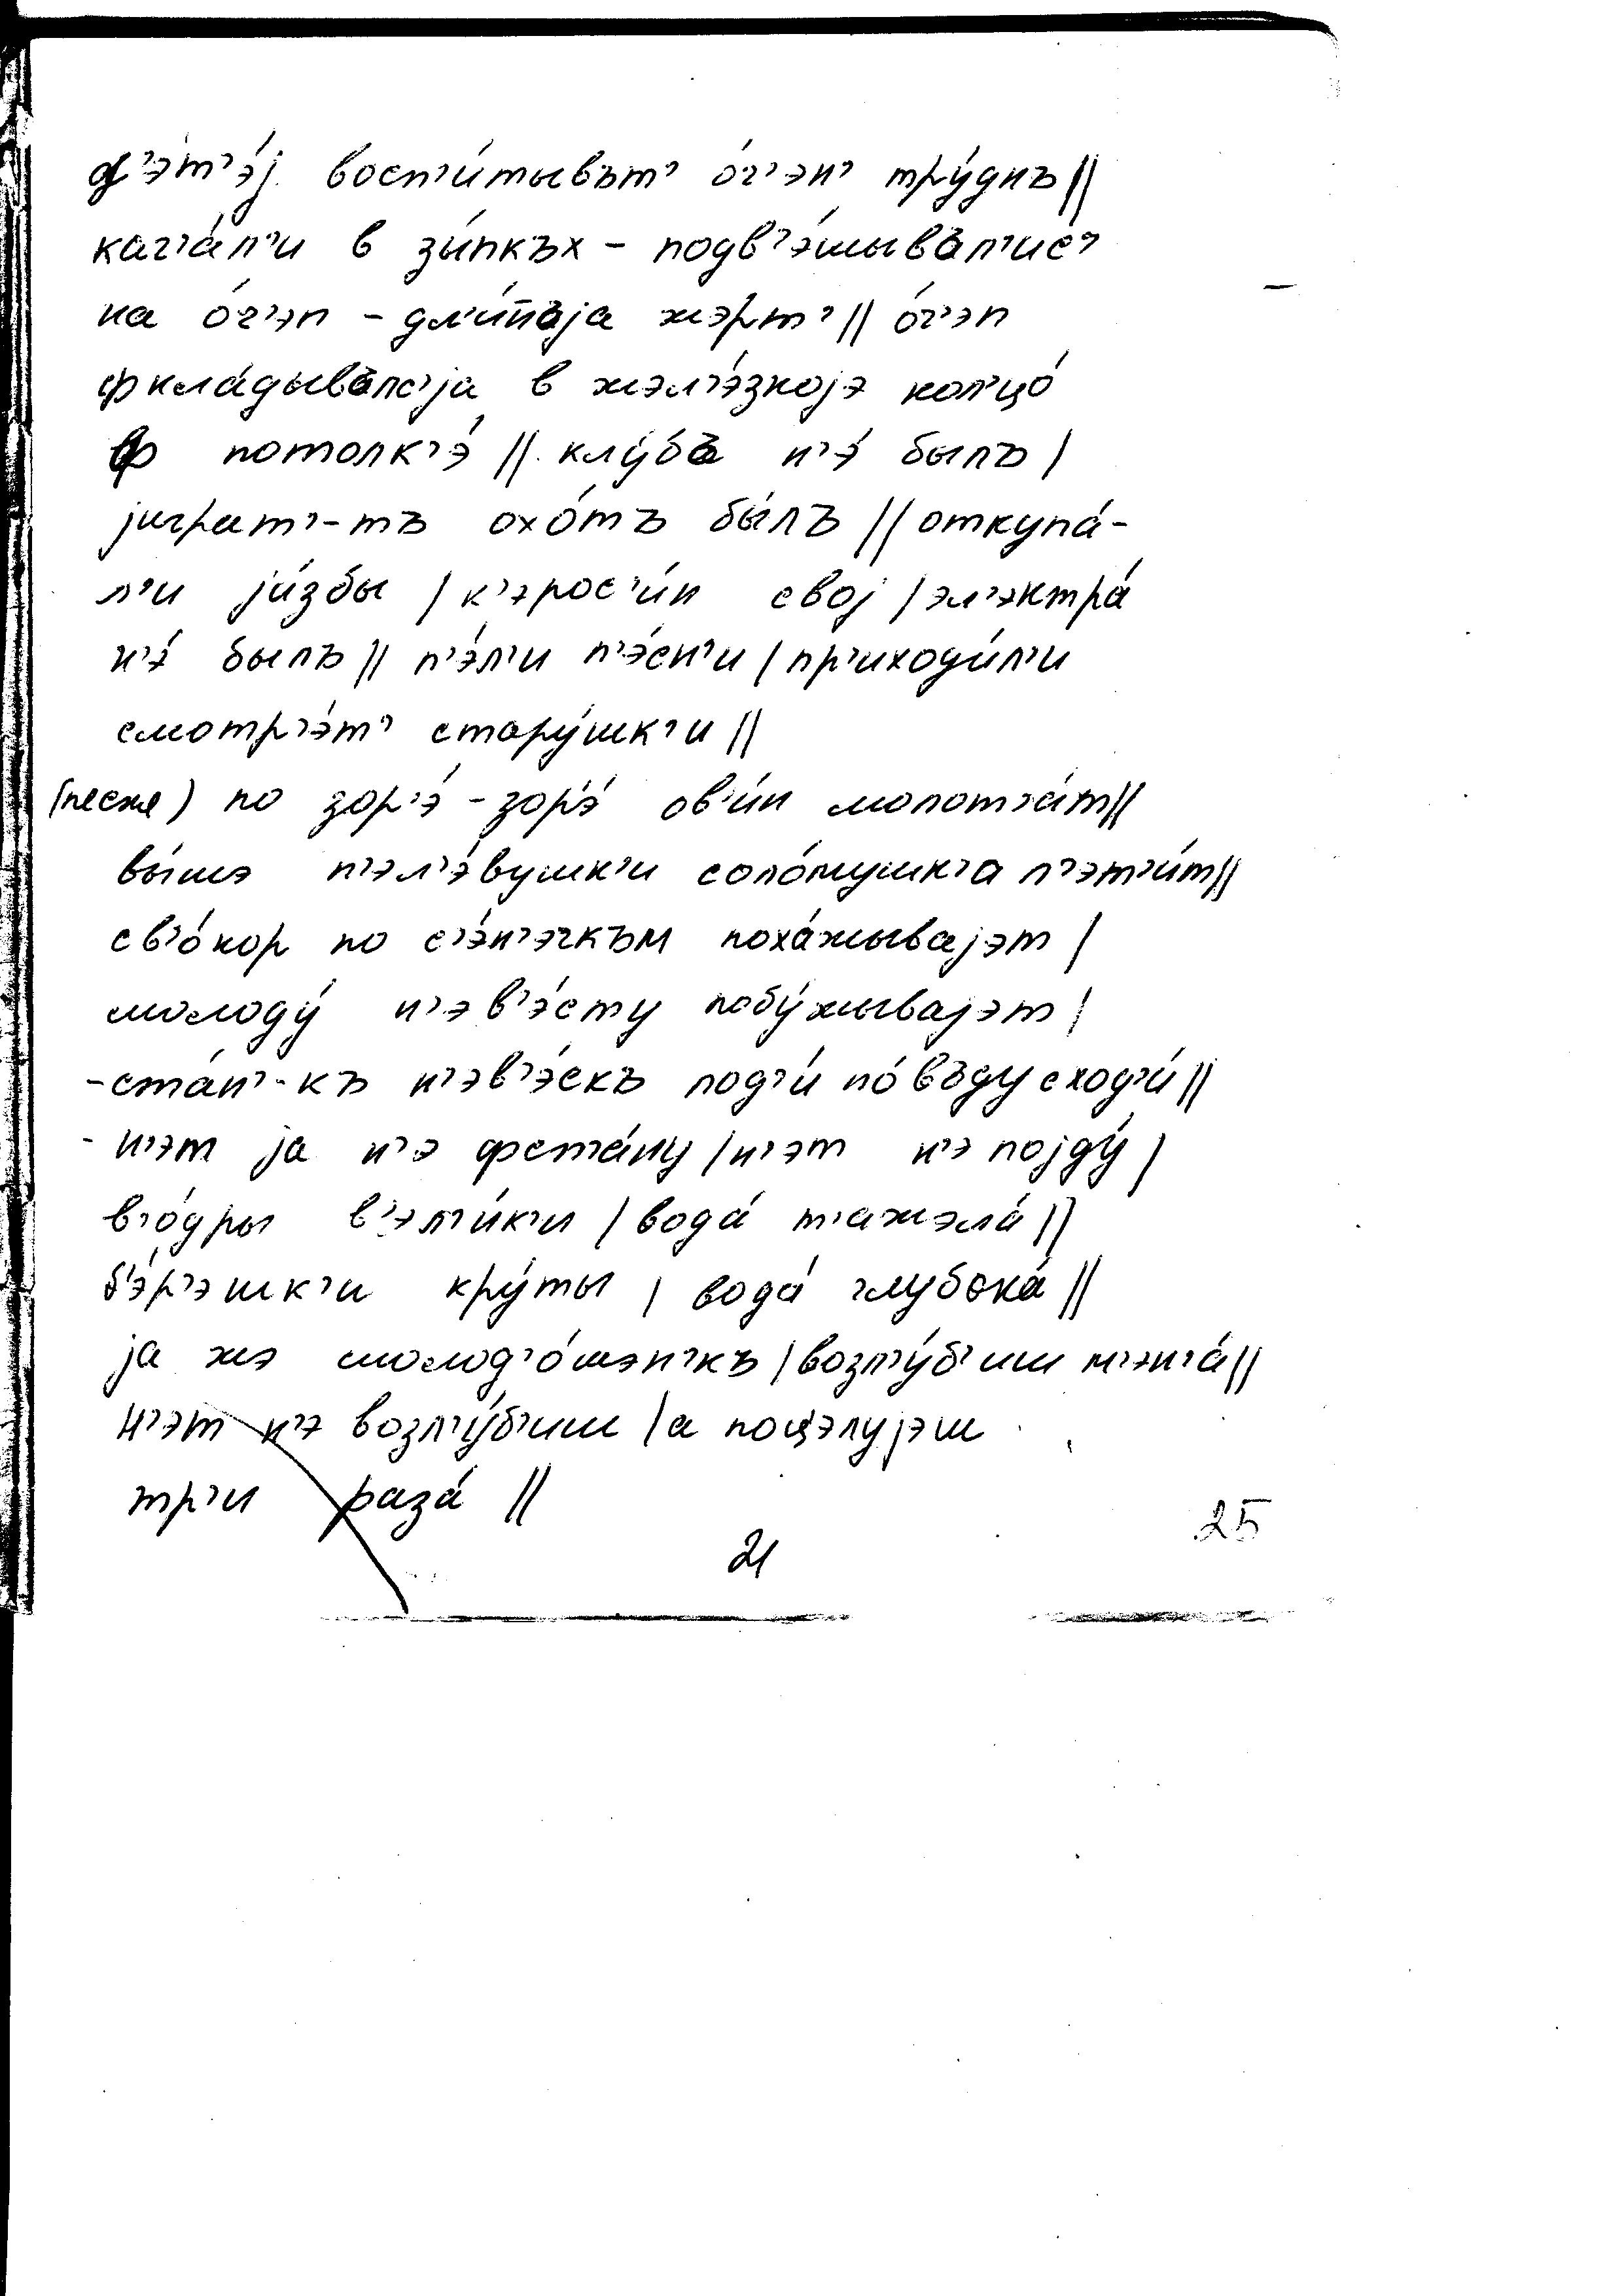 д’э́т’э́j восп’и́тывът’ о́ч’эн’ тру́днъ ||
кач’а́л’и в зы́пкъх – подв’э́шывъл’ис’
на о́ч’эп – дл’и́нъjа жэрт’ || о́ч’эп
фкла́дывълс’jа в жэл’э́зноjэ кол’цо́
ф потолк’э́ || клу́бъ н’э́ былъ |
jиграт’-тъ охо́тъ бы́лъ || откупа́-
л’и jи́збы | к’эрос’и́н свой | эл’эктра́
н’э́ былъ || п’э́л’и п’э́сн’и | пр’иход’и́л’и
смотр’э́т’ стару́шк’и ||
(песня) по зор’э́ – зор’э́ ов’и́н молот’а́т ||
вы́шэ п’эл’э́вушк’и соло́мушк’а л’эт’и́т ||
св’о́кор по с’э́н’эчкъм поха́жываjэт |
молоду́ н’эв’э́сту побу́жываjэт |
– ста́н’-къ н’эв’э́скъ под’и́ по́въду сход’и́ ||
– н’эт jа н’э фста́ну | н’эт н’э поjду́ |
в’о́дры в’эл’и́к’и | вода́ т’ажэла́ ||
б’э́р’эшк’и кру́ты | вода́ глубока́ ||
jа жэ молод’о́шэн’къ | возл’у́б’иш м’эн’а́ ||
н’эт н’э возл’у́б’иш | а поцэлуjэш
тр’и раза́ ||
21
25